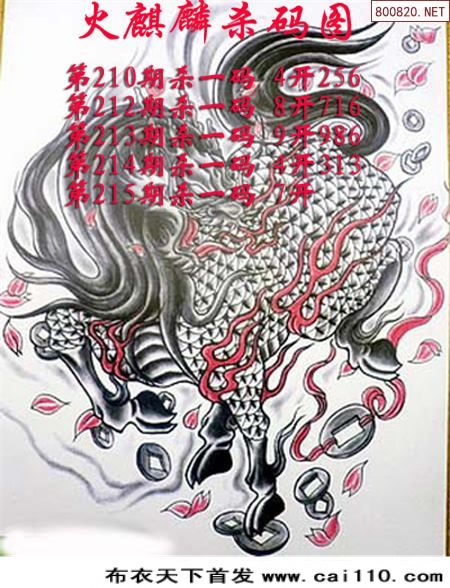 火麒麟杀码图
800820.NET
第210期杀一码 4开256
第212期杀一码 8开716
第213期杀一码 9开986
第214期杀一码 4开313
第215期杀一码 7开
布衣天下首发 www.cai110.com